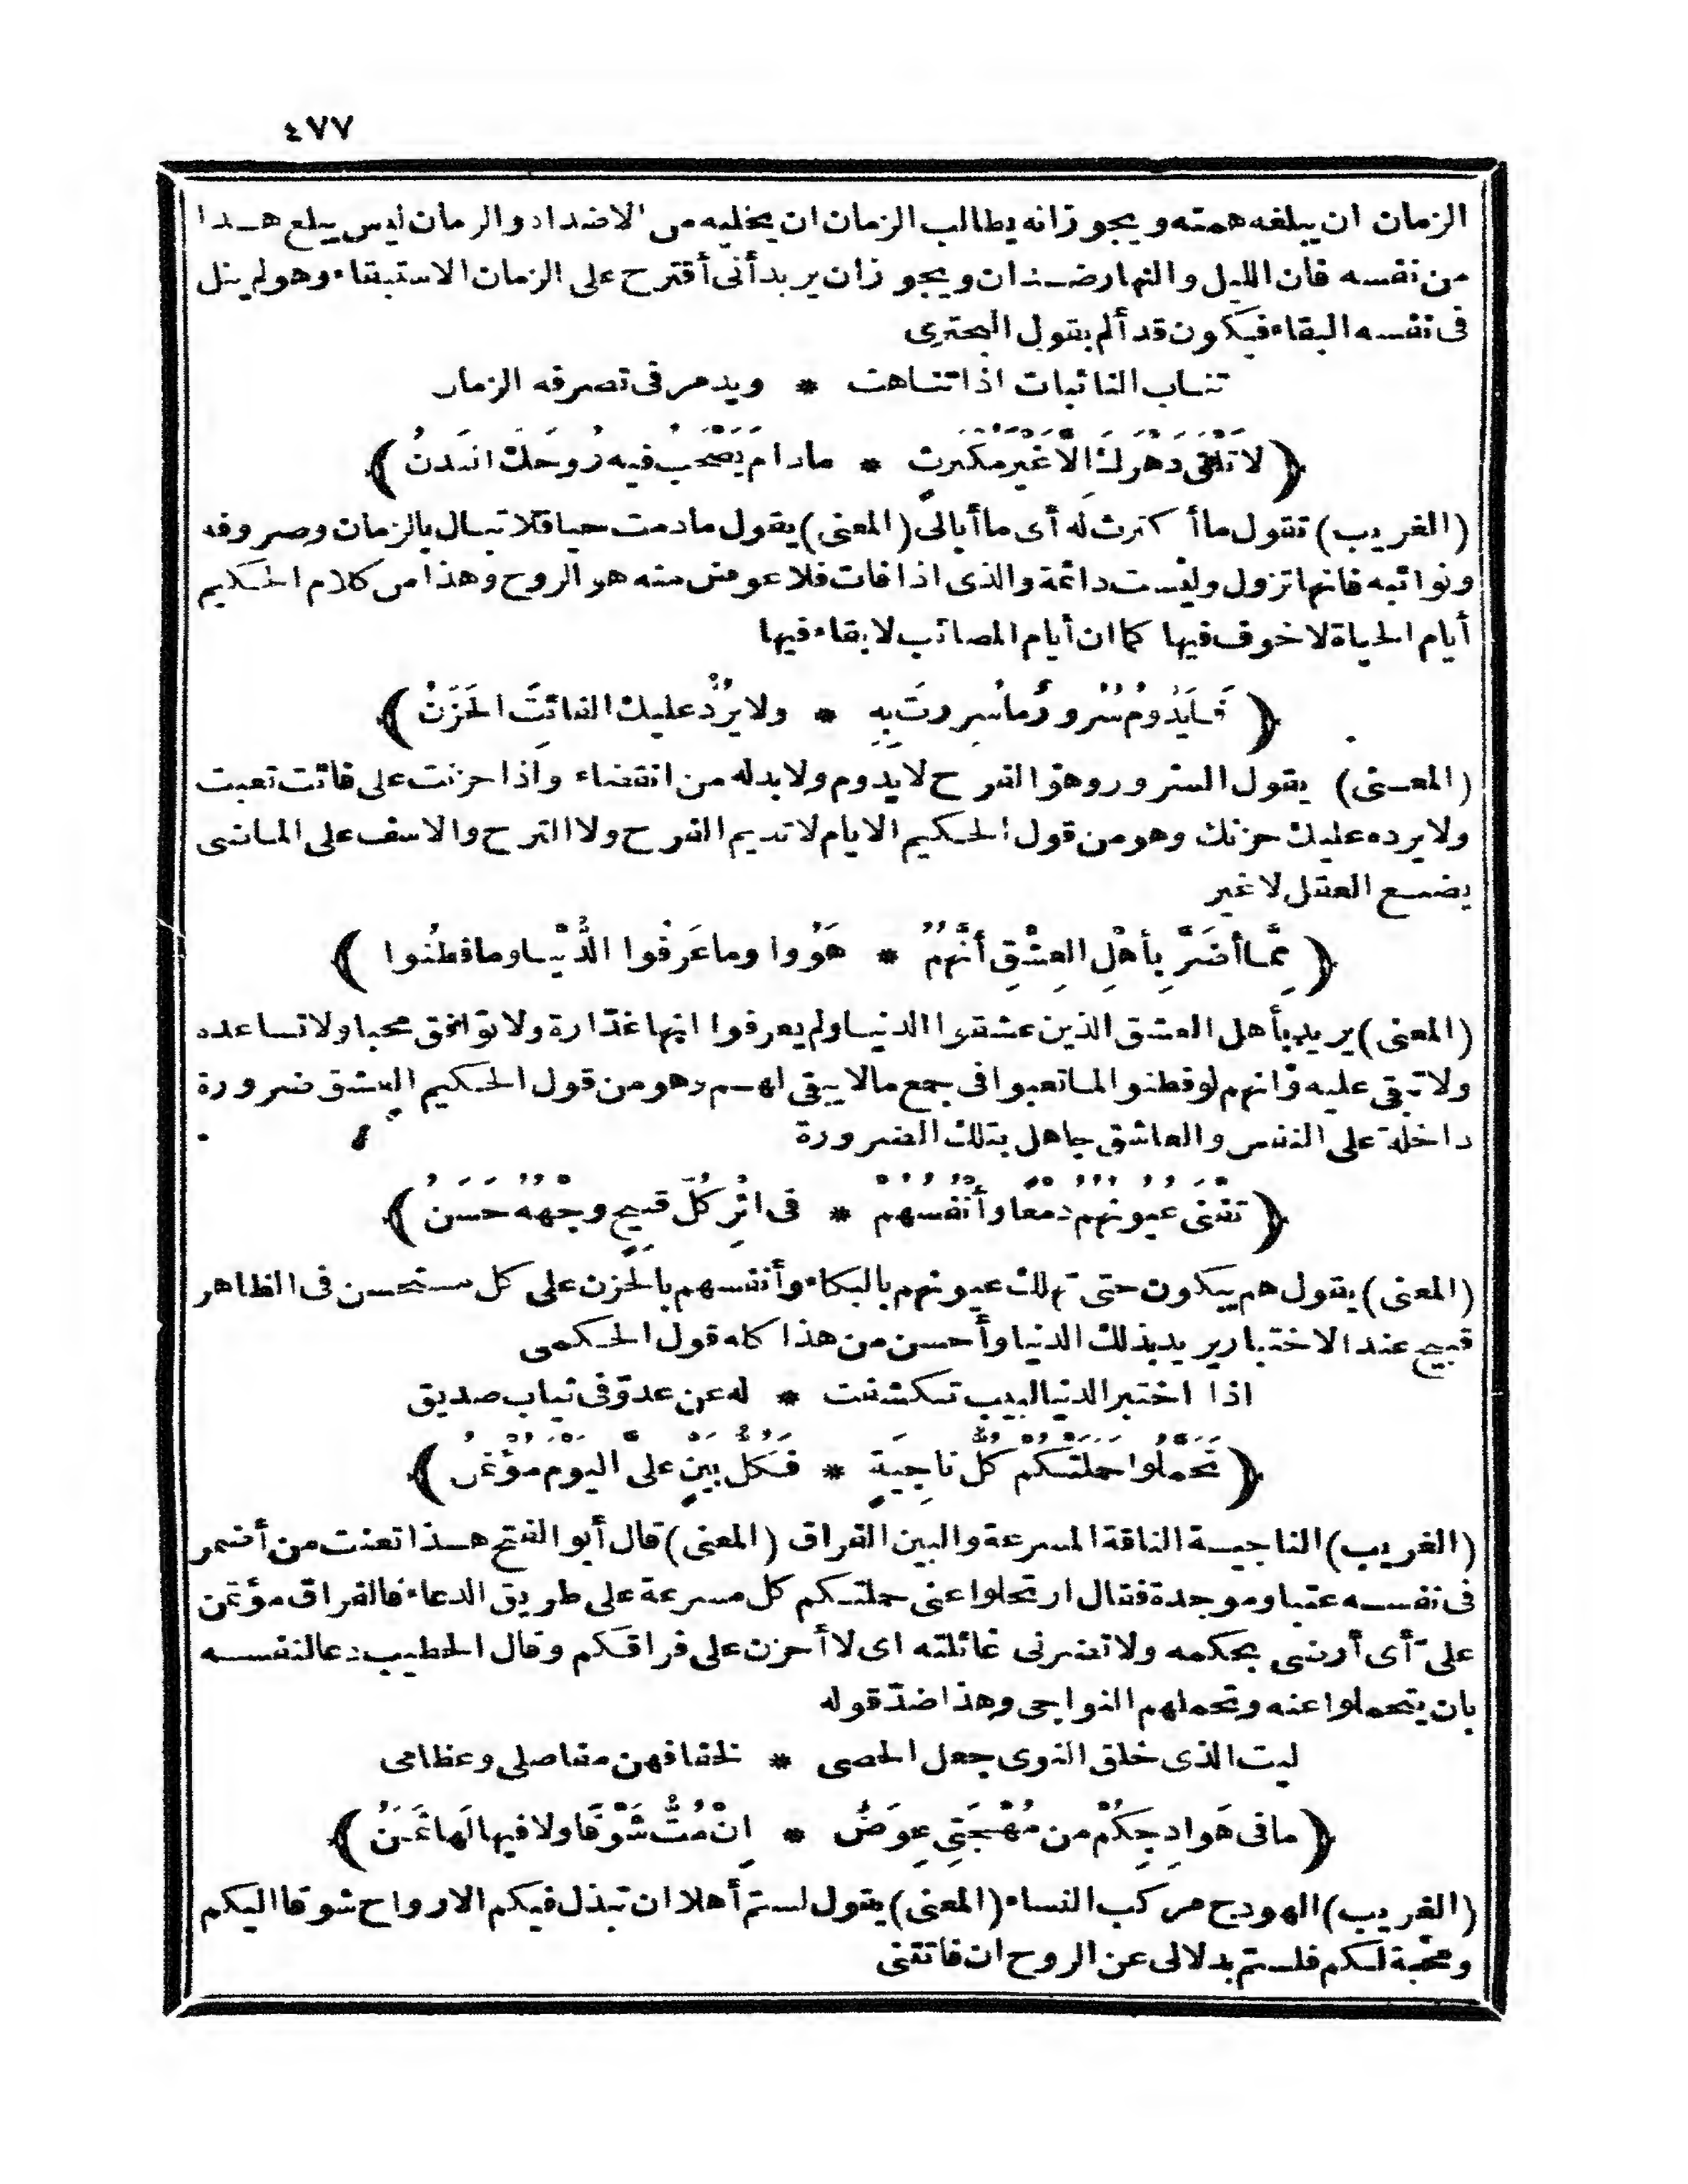 ٤٧٧
الزمان ان يبلغه همته ويجوز انه يطالب الزمان ان يخليه من الاضداد والزمان ليس يبلغ هـذا
من نفسه فان الليل والنهار ضـدان ويجوز ان يريد أنى أقترح على الزمان الاستبقاء وهو لم ينل
فى نفسه البقاء فيكون قد ألم بقول البحترى
تناب النائبات اذا تناهت * ويدمر فى تصرفه الزمان
﴿ لا تَلْقَ دَهْرَكَ اِلَّا غَيْرَ مُكْتَرِثٍ * مادام يَصْحَبُ فيه رُوحَكَ البَدنُ ﴾
(الغريب) تقول ما أكترث له أى ما أبالى (المعنى) يقول مادمت حيا فلا تبال بالزمان وصروفه
ونوائبه فانها تزول وليست دائمة والذى اذا فات فلا عوض منه هو الروح وهذا من كلام الحكيم
أيام الحياة لا خوف فيها كما ان أيام المصائب لا بقاء فيها
﴿ فَما يَدُومُ سُرورُ ما سُرِرتَ بِهِ * ولا يَرُدُّ عليك الفائتَ الحَزَنُ ﴾
(المعـنى) يقول السرور وهو الفرح لا يدوم ولا بد له من انقضاء واذا حزنت على فائت تعبت
ولا يرده عليك حزنك وهو من قول الحكيم الايام لا تديم الفرح ولا الترح والاسف على الماضى
يضيع العقل لا غير
﴿ مِمَّا أَضَرَّ بِأَهْلِ العِشْقِ أَنَّهُمُ * هَوُوا وما عَرَفُوا الدُّنْيـا وما فطنُوا ﴾
(المعنى) يريد بأهل العشق الذين عشقوا الدنيـا ولم يعرفوا انها غدّارة ولا توافق محبا ولا تساعده
ولا تبقى عليه وانهم لو فطنوا لما تعبوا فى جمع مالا يبقى لهـم وهو من قول الحكيم العشق ضرورة
داخلة على النفس والعاشق جاهل بتلك الضرورة
﴿ تَفْنَى عُيُونُهُمُ دَمْعًا وأَنْفُسُهُمْ * فى اثْرِ كُلِّ قبيحٍ وجْهُهُ حَسَنُ ﴾
(المعنى) يقول هم يبكون حتى تهلك عيونهم بالبكاء وأنفسهم بالحزن على كل مستحسن فى الظاهر
قبيح عند الاختبار يريد بذلك الدنيا وأحسن من هذا كله قول الحكمى
اذا اختبر الدنيا لبيب تكشفت * له عن عدوّ فى ثياب صديق
﴿ تَحَمَّلُوا حَمَلَتْكُمْ كُلُّ ناجِيَةٍ * فَكُلُّ بَيْنٍ علىَّ اليَوْمَ مُؤْتَمَنُ ﴾
(الغريب) الناجيـة الناقة المسرعة والبين الفراق (المعنى) قال أبو الفتح هـذا تعنت من أضمر
فى نفسـه عتبا وموجدة فقال ارتحلوا عنى حملتكم كل مسرعة على طريق الدعاء فالفراق مؤتمن
علىّ أى أرضى بحكمه ولا تضرنى غائلته اى لا أحزن على فراقكم وقال الخطيب دعا لنفسـه
بان يتحملوا عنه وتحملهم النواجى وهذا ضدّ قوله
ليت الذى خلق النوى جعل الحصى * لخفافهن مفاصلى وعظامى
﴿ ما فى هَوادِجِكُمْ من مُهْجَتِى عِوَضٌ * اِنْ مُتُّ شَوْقًا ولا فيها لَها ثَمَنُ ﴾
(الغريب) الهودج مركب النساء (المعنى) يقول لستم أهلا ان تبذل فيكم الارواح شوقا اليكم
ومحبّة لكم فلستم بدلا لى عن الروح ان فاتتنى